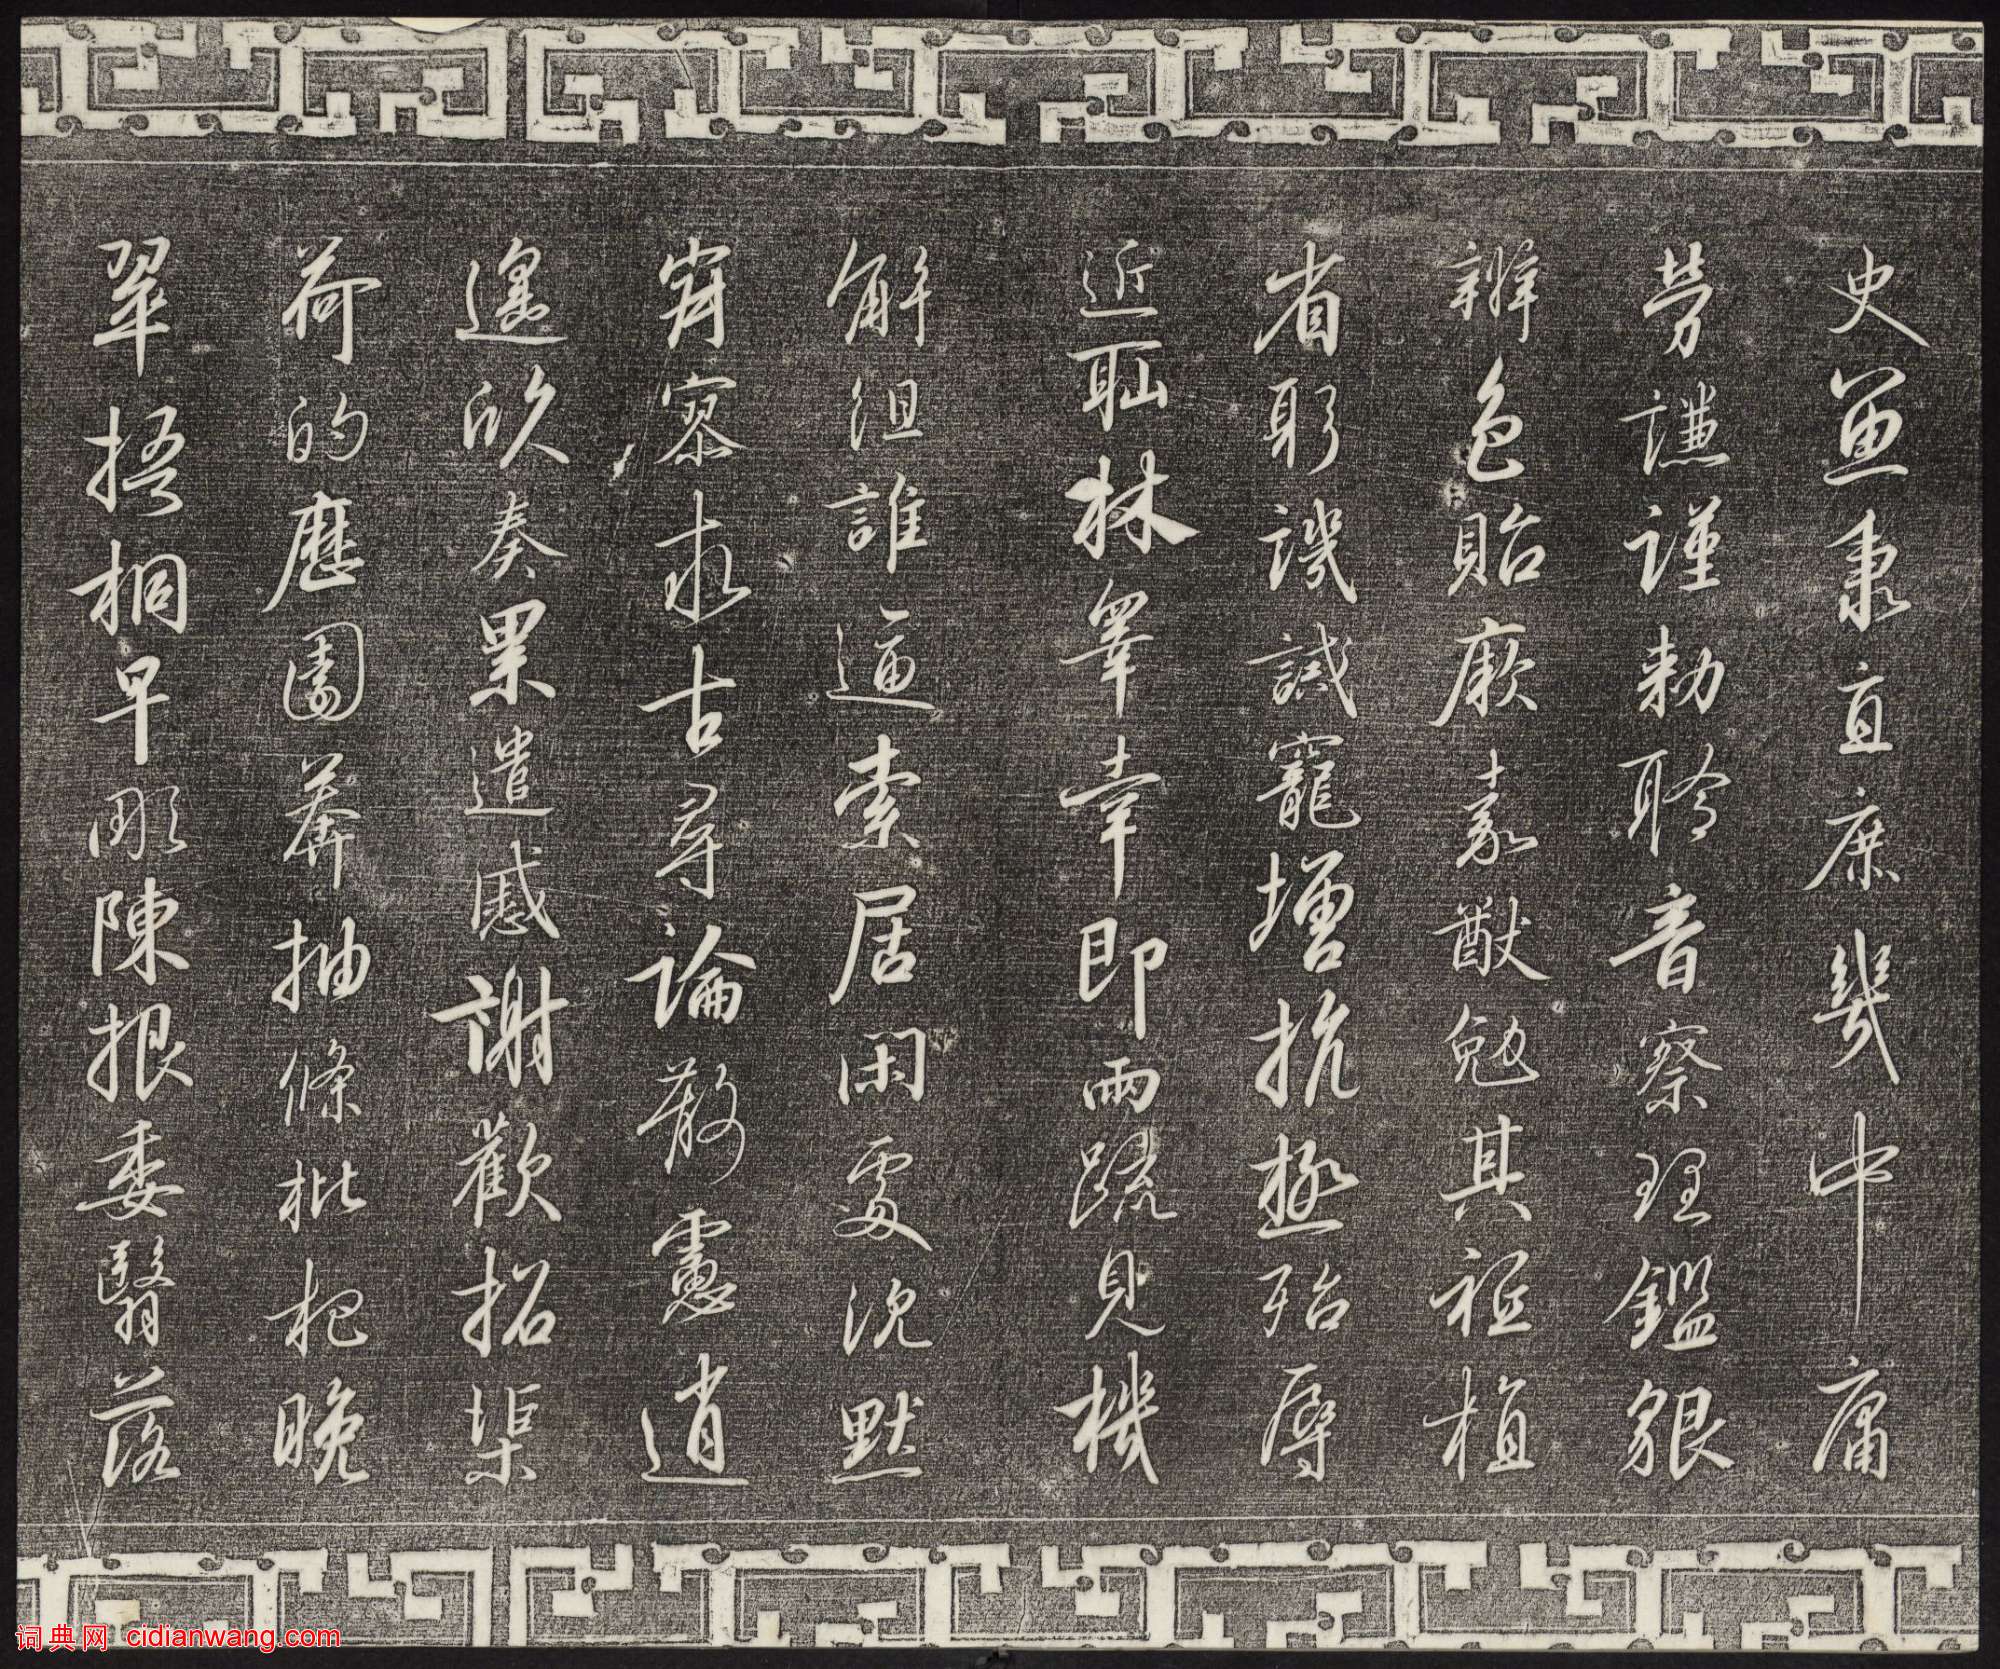 史魚秉直庶幾中庸
勞謙謹勑聆音察理鑑貌
辨色貽厥嘉猷勉其祗植
省躬譏誡寵增抗極殆辱
近耻林皋幸即兩疏見機
解組誰逼索居閑處沉默
寂寥求古尋論散慮逍
遙欣奏累遣慼謝歡招渠
荷的歷園莽抽條枇杷晚
翠梧桐早彫陳根委翳落
词典网 cidianwang.com